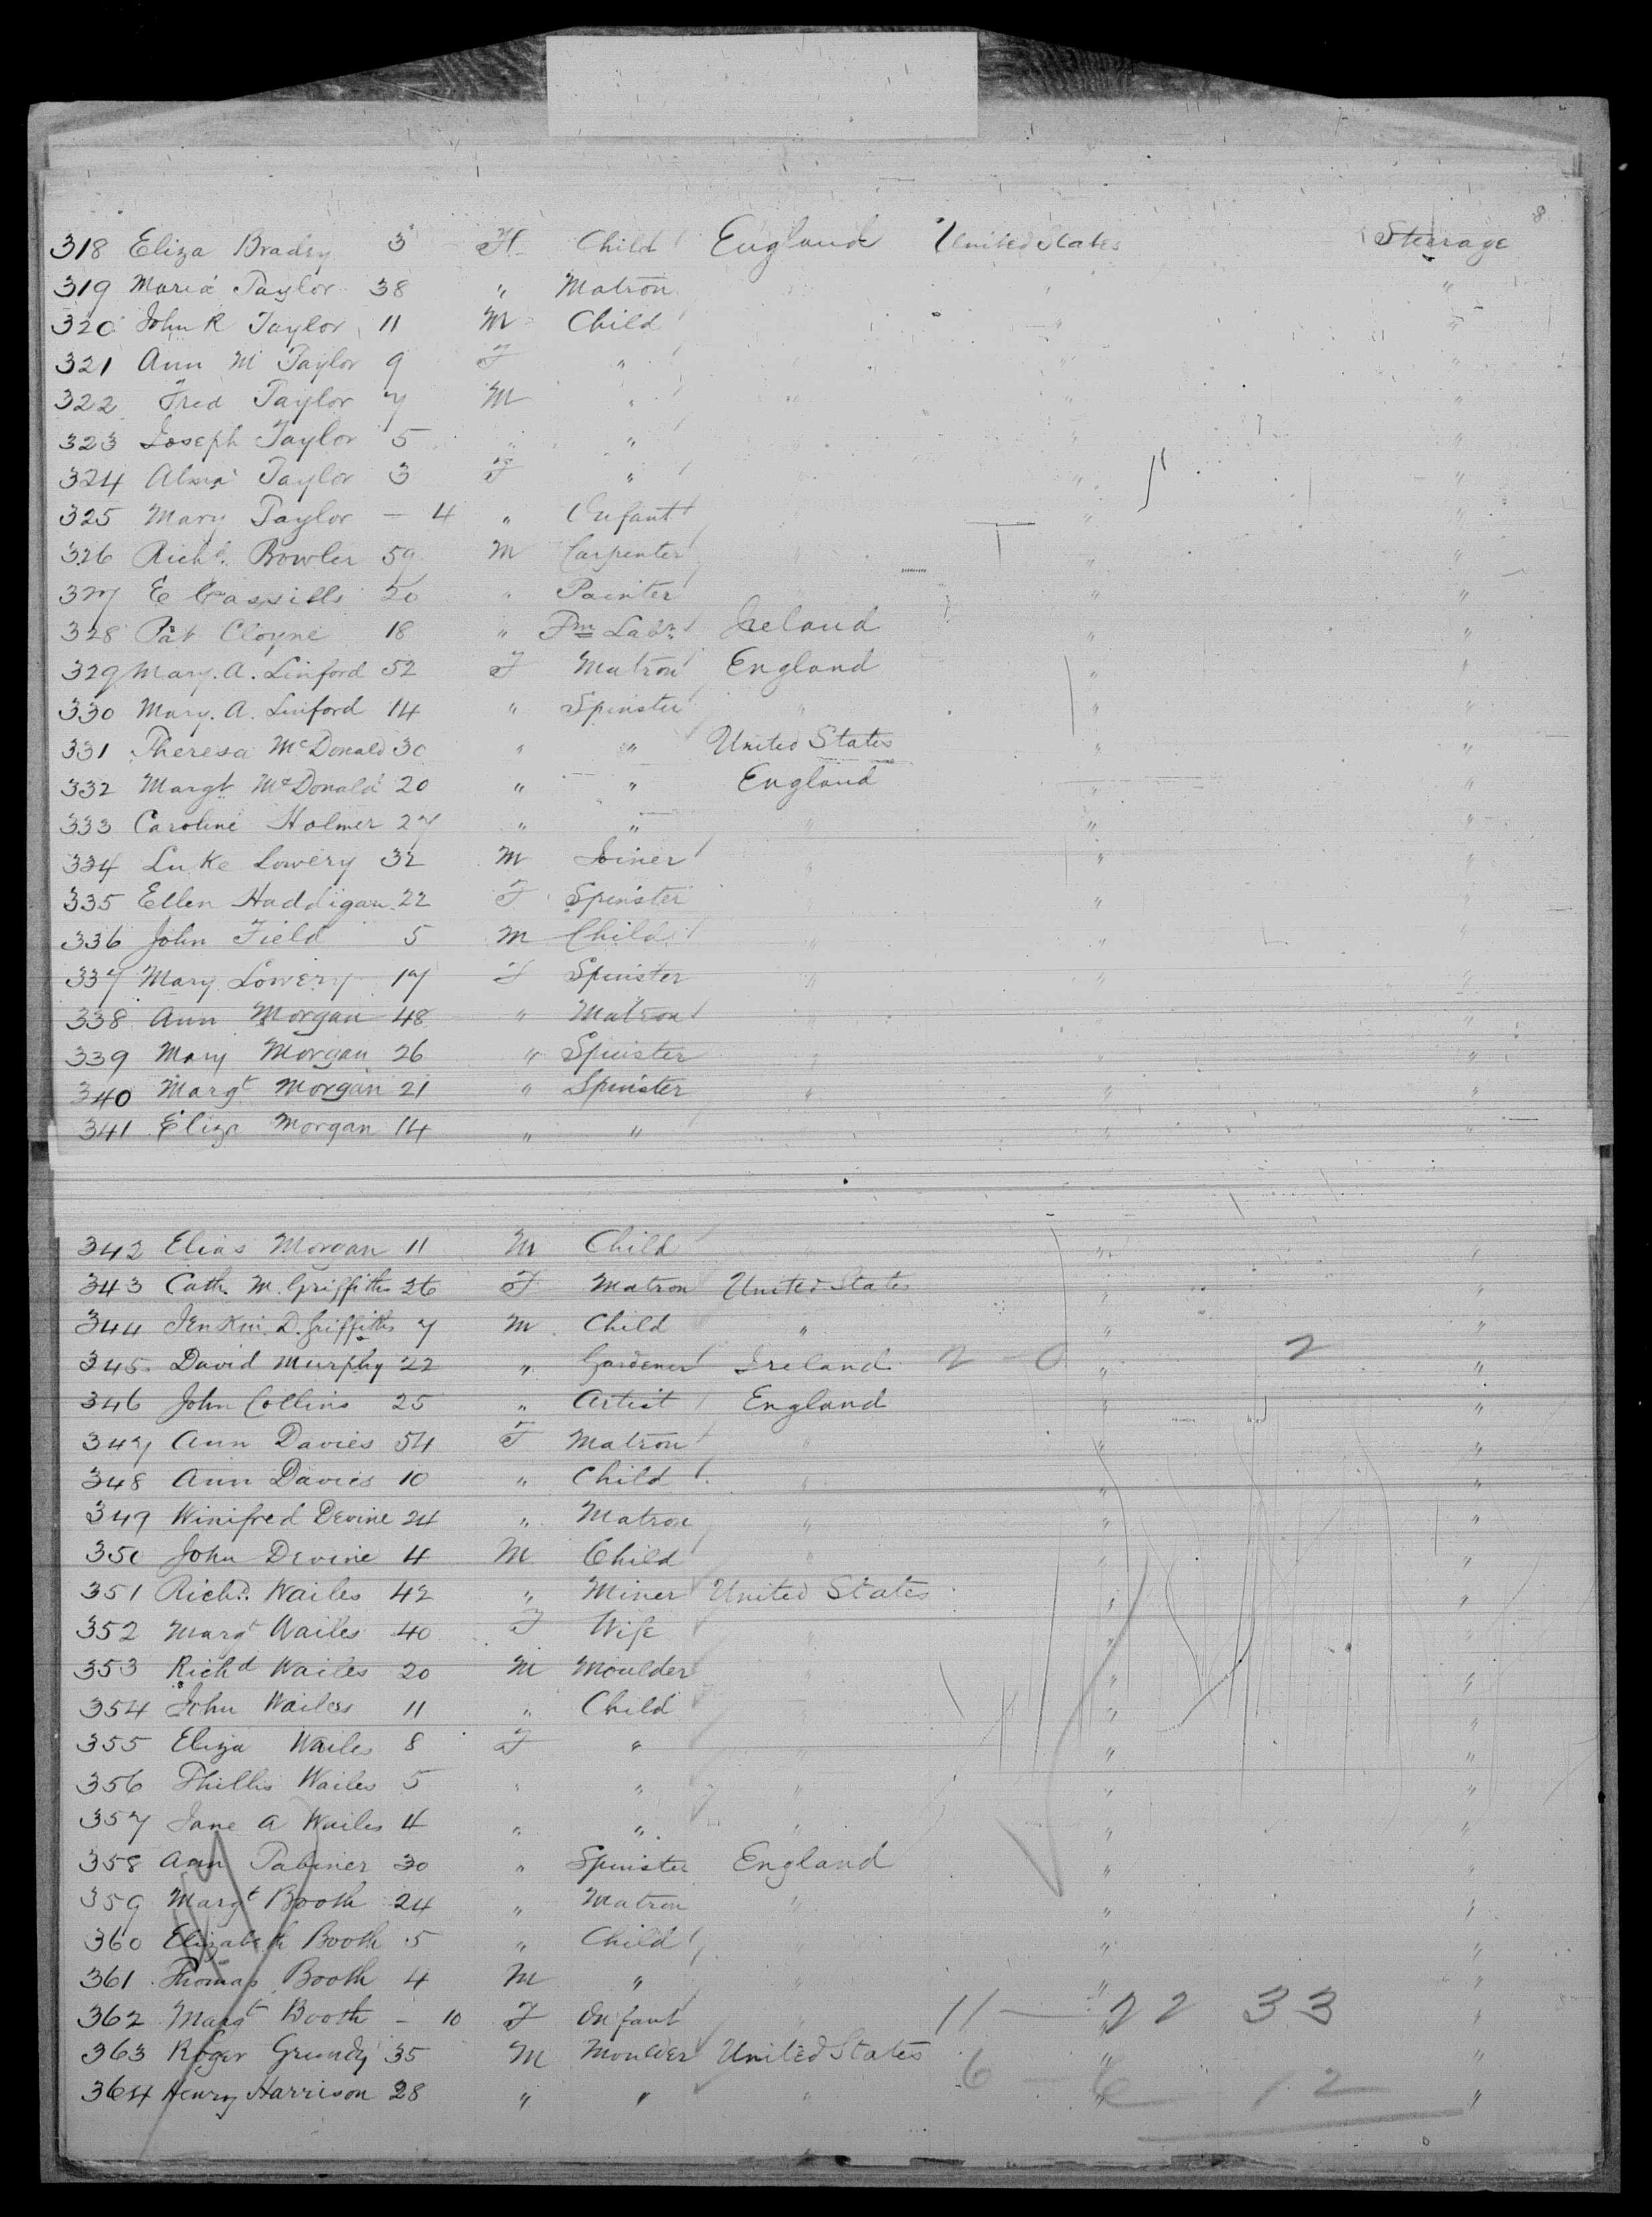 8
318 Eliza Bradey 3 F Child England United States Steerage
319 Maria Taylor 38 " Matron " "
320 John R Taylor 11 M Child " "
321 Ann M Taylor 9 F " " "
322 Fred Taylor 7 M " " " "
323 Joseph Taylor 5 " " " "
324 Taylor 3 F " " "
325 Mary Taylor - 4 " Infant " "
326 Richd. Bowler 59 M Carpenter " "
327 E Cassills 20 " Painter " "
328 Pat Cloyne 18 " Fm Labr Ireland " "
329 Mary. A. Linford 52 F Matron England " "
330 Mary. A. Linford 14 " Spinster " " "
331 Theresa McDonald 30 " " United States " "
332 Margt McDonald 20 " " England " "
333 Caroline Holmer 27 " " " " "
334 Luke Lowery 32 M Joiner " " "
335 Ellen Haddigan 22 F Spinster " " "
336 John Field 5 M Child " " "
337 Mary Lowery 17 F Spinster " " "
338 Ann Morgan 48 " Matron " "
339 Mary Morgan 26 " Spinster " " "
340 Margt Morgan 21 " Spinster " " "
341 Eliza Morgan 14 " " " " "
342 Elias Morgan 11 M Child " "
343 Cath. M. Griffiths 26 F Matron United States " "
344 Jenkin. D. Griffiths 7 M Child " " "
345 David Murphy 22 " Gardener Ireland 2 0 " 2 "
346 John Collins 25 " Artist England " "
347 Ann Davies 54 F Matron " " "
348 Ann Davies 10 " Child " " "
349 Winifred Devine 24 " Matron " " "
350 John Devine 4 M Child " " "
351 Richd. Wailes 42 " Miner United States " "
352 Margt Wailes 40 F Wife " " "
353 Richd Wailes 20 M Moulder " " "
354 John Wailes 11 " Child " "
355 Eliza Wailes 8 F " " " "
356 Phillis Wailes 5 " " " " "
357 Jane A Wailes 4 " " " " "
358 Ann Tabiner 30 " Spinster England " "
359 Margt Booth 24 " Matron " " "
360 Elizabeth Booth 5 " Child " " "
361 Thomas Booth 4 M " " " "
362 Margt Booth - 10 F Infant " 11 — 22 33 "
363 Roger Grundy 35 M Moulder United States 6 — 6 12 "
364 Henry Harrison 28 " " " " "